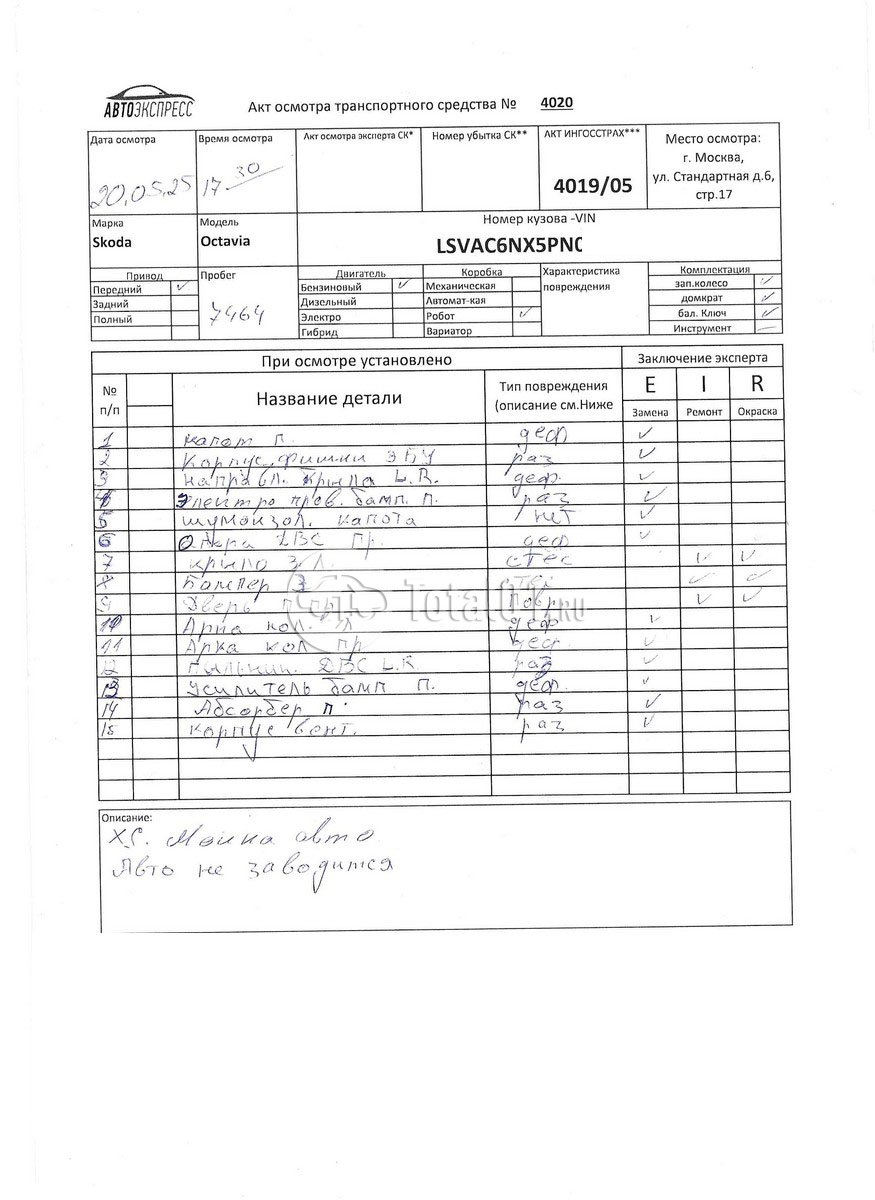 АВТОЭКСПРЕСС
Акт осмотра транспортного средства № 4020
Дата осмотра
20.05.25
Время осмотра
17 30
Акт осмотра эксперта СК*
Номер убытка СК**
АКТ ИНГОССТРАХ***
4019/05
Место осмотра:
г. Москва,
ул. Стандартная д.6,
стр.17
Марка
Skoda
Модель
Octavia
Номер кузова -VIN
LSVAC6NX5PNC
Привод
Передний ✓
Задний
Полный
Пробег
7464
Двигатель
Бензиновый ✓
Дизельный
Электро
Гибрид
Коробка
Механическая
Автомат-кая
Робот ✓
Вариатор
Характеристика
повреждения
Комплектация
зап.колесо ✓
домкрат ✓
бал. Ключ ✓
Инструмент —
При осмотре установлено
Заключение эксперта
№ п/п
Название детали
Тип повреждения
(описание см.Ниже
E I R
Замена Ремонт Окраска
1 капот П. деф ✓
2 Корпус фишки ЭБУ раз ✓
3 направл. Крыла L.R. деф. ✓
4 Электро пров. бамп. П. раз ✓
5 шумоизол. капота нет ✓
6 Опора ДВС Пр. деф ✓
7 крыло З Л. стёс ✓ ✓
8 Бампер З ✓ ✓
9 Дверь повр ✓ ✓
10 Арка кол. деф ✓
11 Арка кол пр деф. ✓
12 Пыльник. ДВС L.R. раз ✓
13 Усилитель бамп П. деф. ✓
14 Абсорбер П. раз ✓
15 корпус вент. раз ✓
TotalCar.RU
Описание:
Мойка авто
Авто не заводится